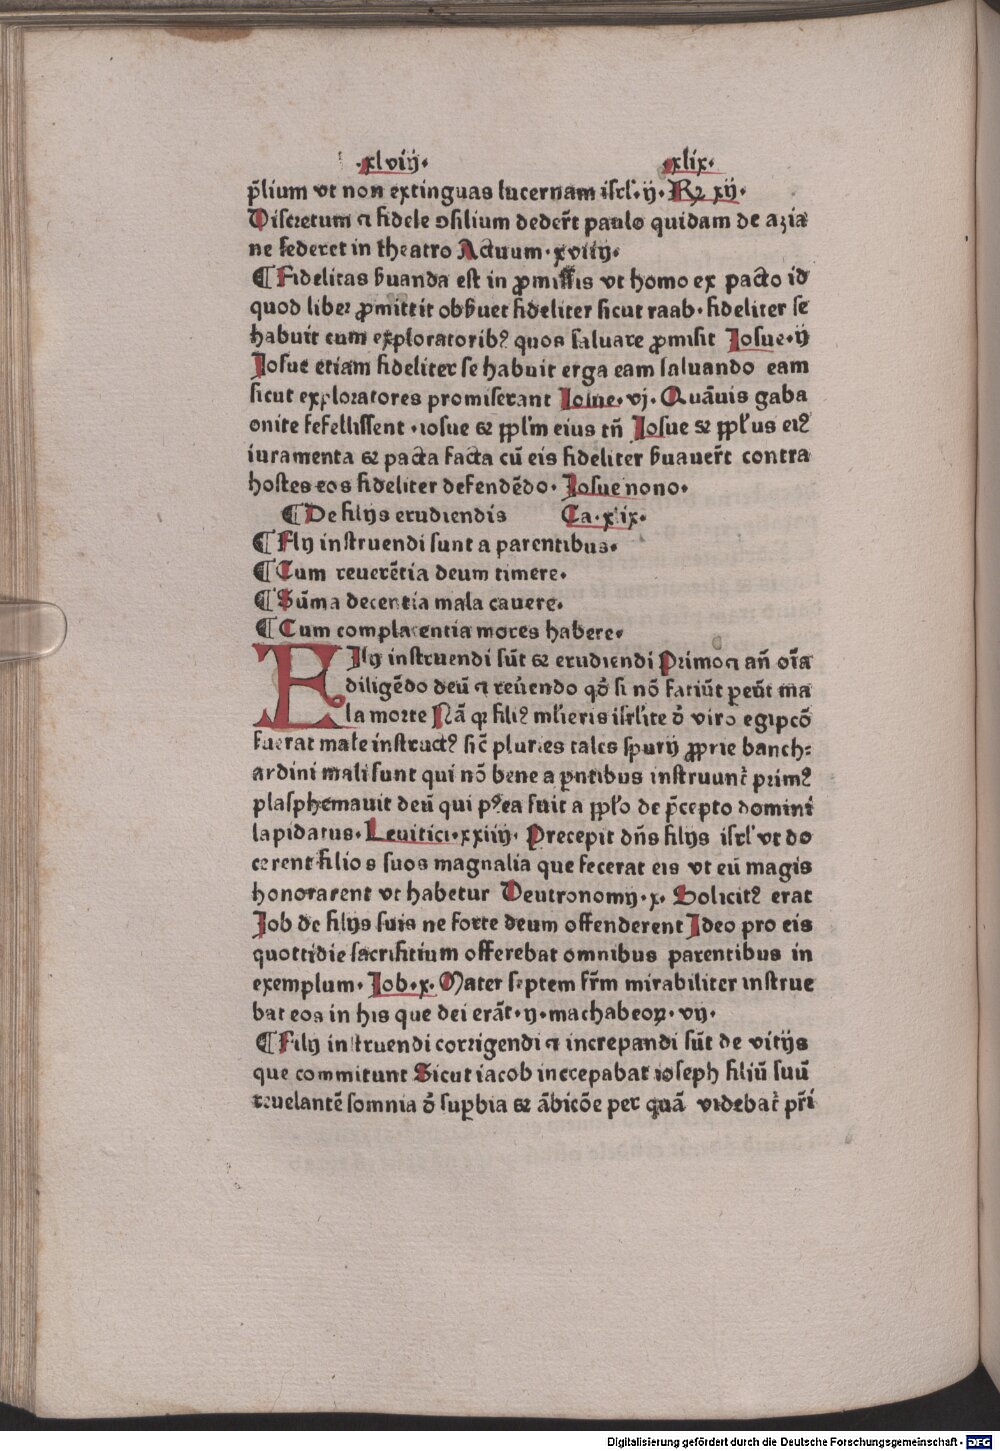 ·xlviij· ·xlix·
p̄lium vt non extinguas lucernam isrl'·ij· Rꝝ xij·
Discretum ⁊ fidele ↄsilium dedert̄ paulo quidam de azia
ne sederet in theatro Actuum·xviiij·
¶ Fidelitas ẜuanda est in ꝓmissis vt homo ex pacto id
quod liber ꝓmittit obẜuet fideliter sicut raab· fideliter se
habuit cum exploratoribꝰ quos saluare ꝓmisit Josue·ij
Josue etiam fideliter se habuit erga eam saluando eam
sicut exploratores promiserant Josue·vj· Quāuis gaba
onite fefellissent ·iosue ⁊ ppl'm eius tn̄ Josue ⁊ ppl'us eiꝰ
iuramenta ⁊ pacta facta cū eis fideliter ẜuauert̄ contra
hostes eos fideliter defendēdo· Josue nono·
¶ De filijs erudiendis Ca·xlix·
¶ Fly instruendi sunt a parentibus·
¶ Cum reuerētia deum timere·
¶ Sūma decentia mala cauere·
¶ Cum complacentia mores habere·
FIly instruendi sūt ⁊ erudiendi Primo ⁊ an̄ oīa
diligēdo deū ⁊ reūendo qd̄ si nō faciūt peūt ma
la morte Nā qꝛ filiꝰ mlieris isrl'ite d̄ viro egipcō
fuerat male instructꝰ sic̄ pluries tales spurij ꝓprie banch⸗
ardini mali sunt qui nō bene a pn̄tibus instruunt̄ primꝰ
plasphemauit deū qui pꝰea fuit a ppl'o de p̄cepto domini
lapidatus· Leuitici·xxiiij· Precepit dn̄s filijs isrl' vt do
cerent filios suos magnalia que fecerat eis vt eū magis
honorarent vt habetur Deutronomij·x· Solicitꝰ erat
Job de filijs suis ne forte deum offenderent Ideo pro eis
quottidie sacrifitium offerebat omnibus parentibus in
exemplum· Job·x· Mater septem fr̄m mirabiliter instrue
bat eos in his que dei erāt·ij·machabeoꝝ·vij·
¶ Filij instruendi corrigendi ⁊ increpandi sūt de vitijs
que commitunt Sicut iacob increpabat ioseph filiū suū
reuelantē somnia d̄ supbia ⁊ ābicōe per quā videbat̄ pr̄i
Digitalisierung gefördert durch die Deutsche Forschungsgemeinschaft - DFG